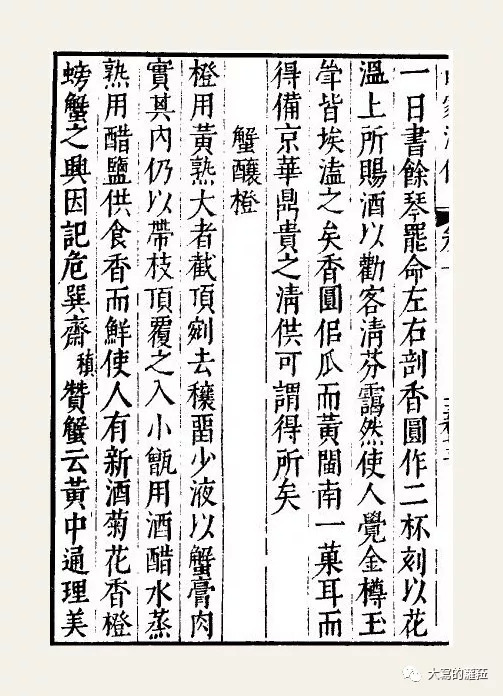 一日書餘琴罷命左右剖香圓作二杯刻以花
溫上所賜酒以勸客清芬靄然使人覺金樽玉
斝皆埃𡏖之矣香圓佀瓜而黃閩南一菓耳而
得備京華鼎貴之清供可謂得所矣
蟹釀橙
橙用黃熟大者截頂剜去穰畱少液以蟹膏肉
實其內仍以帶枝頂覆之入小甑用酒醋水蒸
熟用醋鹽供食香而鮮使人有新酒菊花香橙
螃蟹之興因記危巽齋稹贊蟹云黃中通理美
大寫的蘿菈